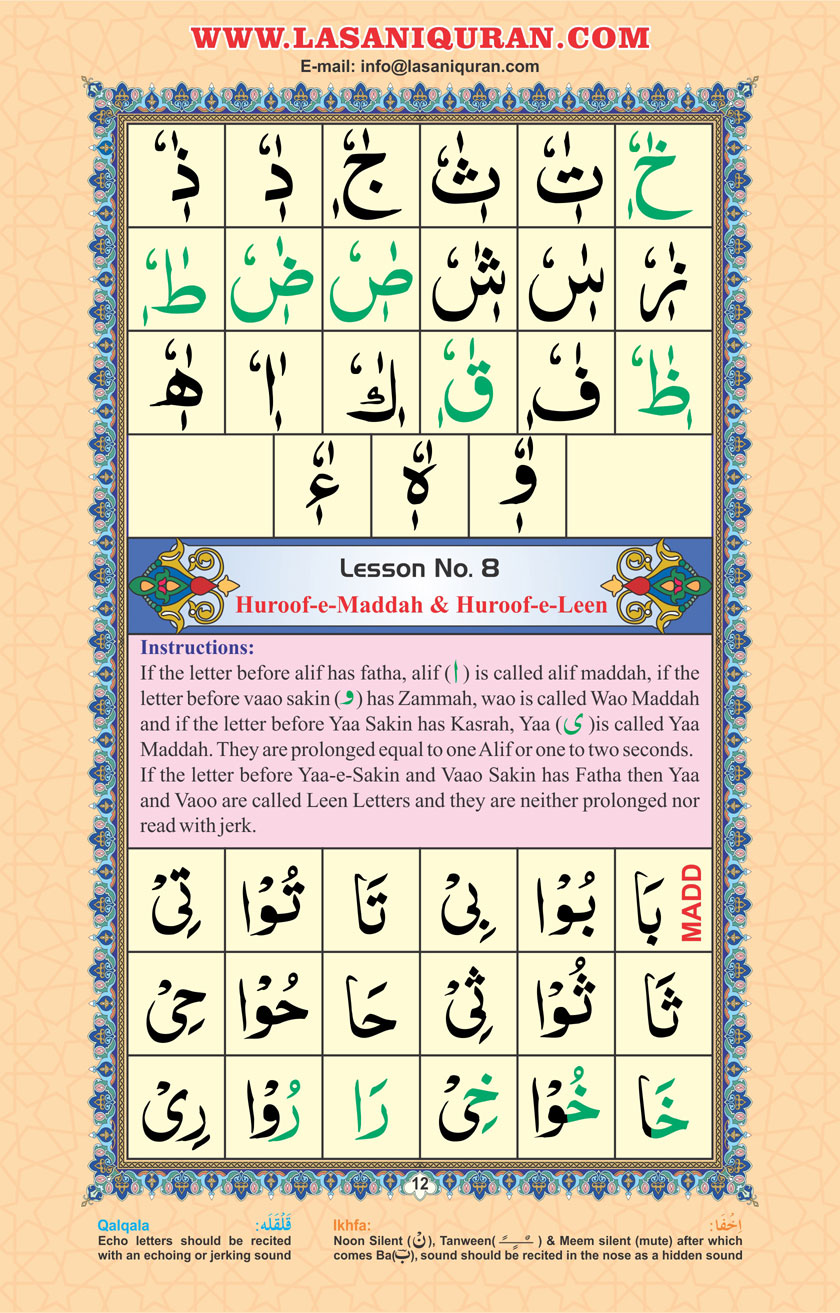 WWW.LASANIQURAN.COM
E-mail: info@lasaniquran.com
خٰٖٗ تٰٖٗ ثٰٖٗ جٰٖٗ دٰٖٗ ذٰٖٗ
زٰٖٗ سٰٖٗ شٰٖٗ صٰٖٗ ضٰٖٗ طٰٖٗ
ظٰٖٗ فٰٖٗ قٰٖٗ كٰٖٗ اٰٖٗ ھٰٖٗ
وٰٖٗ هٰٖٗ ءٰٖٗ
Lesson No. 8
Huroof-e-Maddah & Huroof-e-Leen
Instructions:
If the letter before alif has fatha, alif (ا) is called alif maddah, if the
letter before vaao sakin (و) has Zammah, wao is called Wao Maddah
and if the letter before Yaa Sakin has Kasrah, Yaa (ى)is called Yaa
Maddah. They are prolonged equal to one Alif or one to two seconds.
If the letter before Yaa-e-Sakin and Vaao Sakin has Fatha then Yaa
and Vaoo are called Leen Letters and they are neither prolonged nor
read with jerk.
MADD
بَا بُوْا بِىْ تَا تُوْا تِىْ
ثَا ثُوْا ثِىْ حَا حُوْا حِىْ
خَا خُوْا خِىْ رَا رُوْا رِىْ
12
Qalqala قَلْقَلَه:
Echo letters should be recited
with an echoing or jerking sound
Ikhfa: اِخْفَا:
Noon Silent (نْ), Tanween( ـًـٍـٌ ) & Meem silent (mute) after which
comes Ba(ب), sound should be recited in the nose as a hidden sound